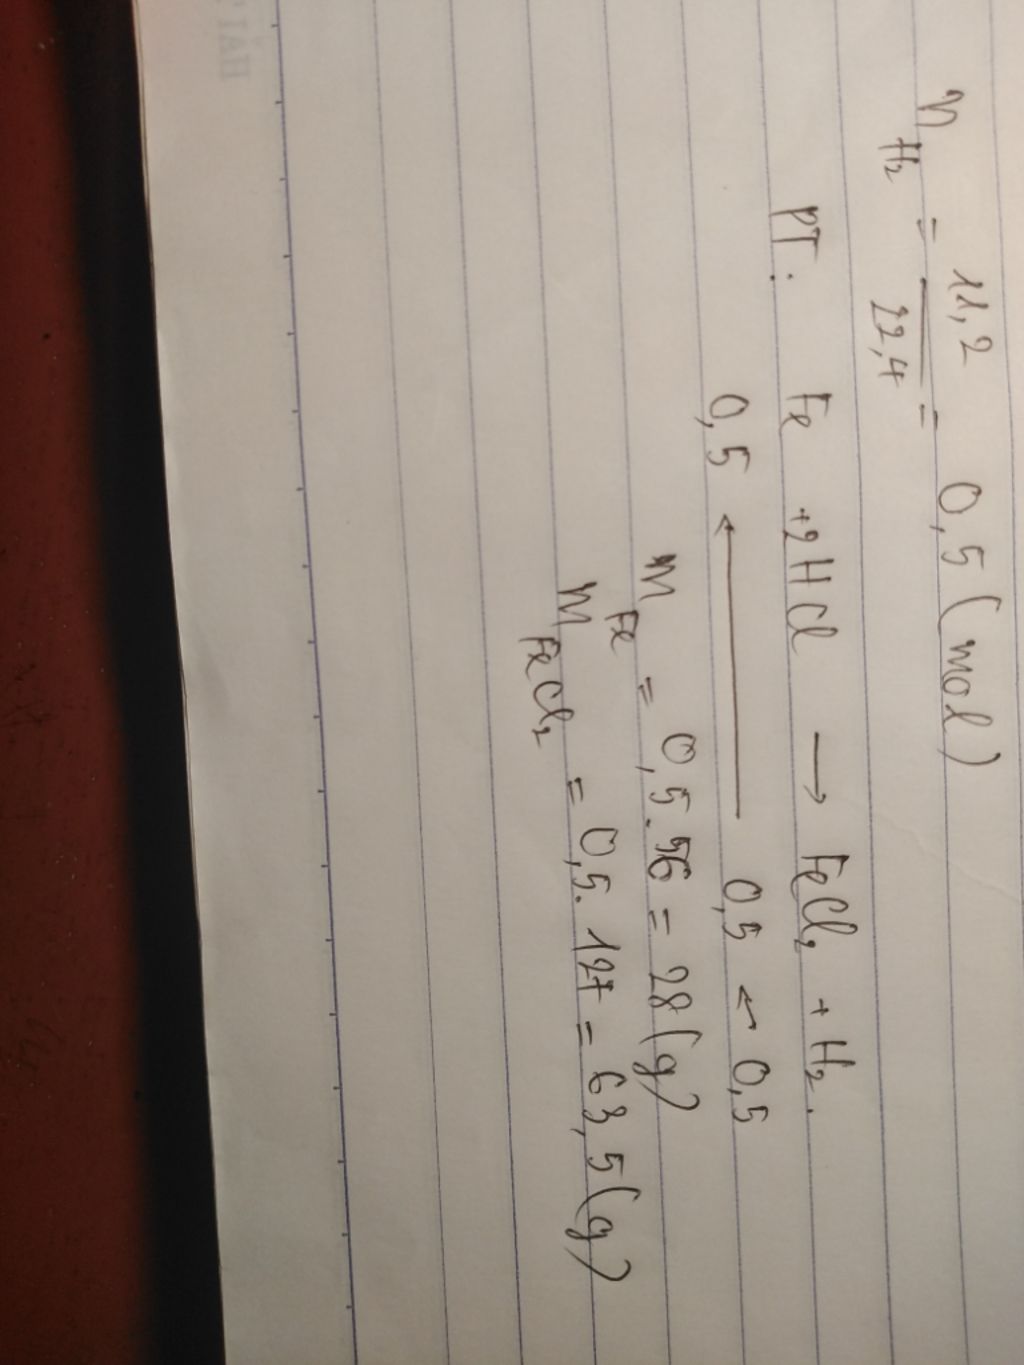 n H₂ = 11,2 / 22,4 = 0,5 (mol)
PT: Fe + 2HCl → FeCl₂ + H₂.
0,5 ← 0,5 ← 0,5
m Fe = 0,5.56 = 28 (g)
m FeCl₂ = 0,5.127 = 63,5 (g)